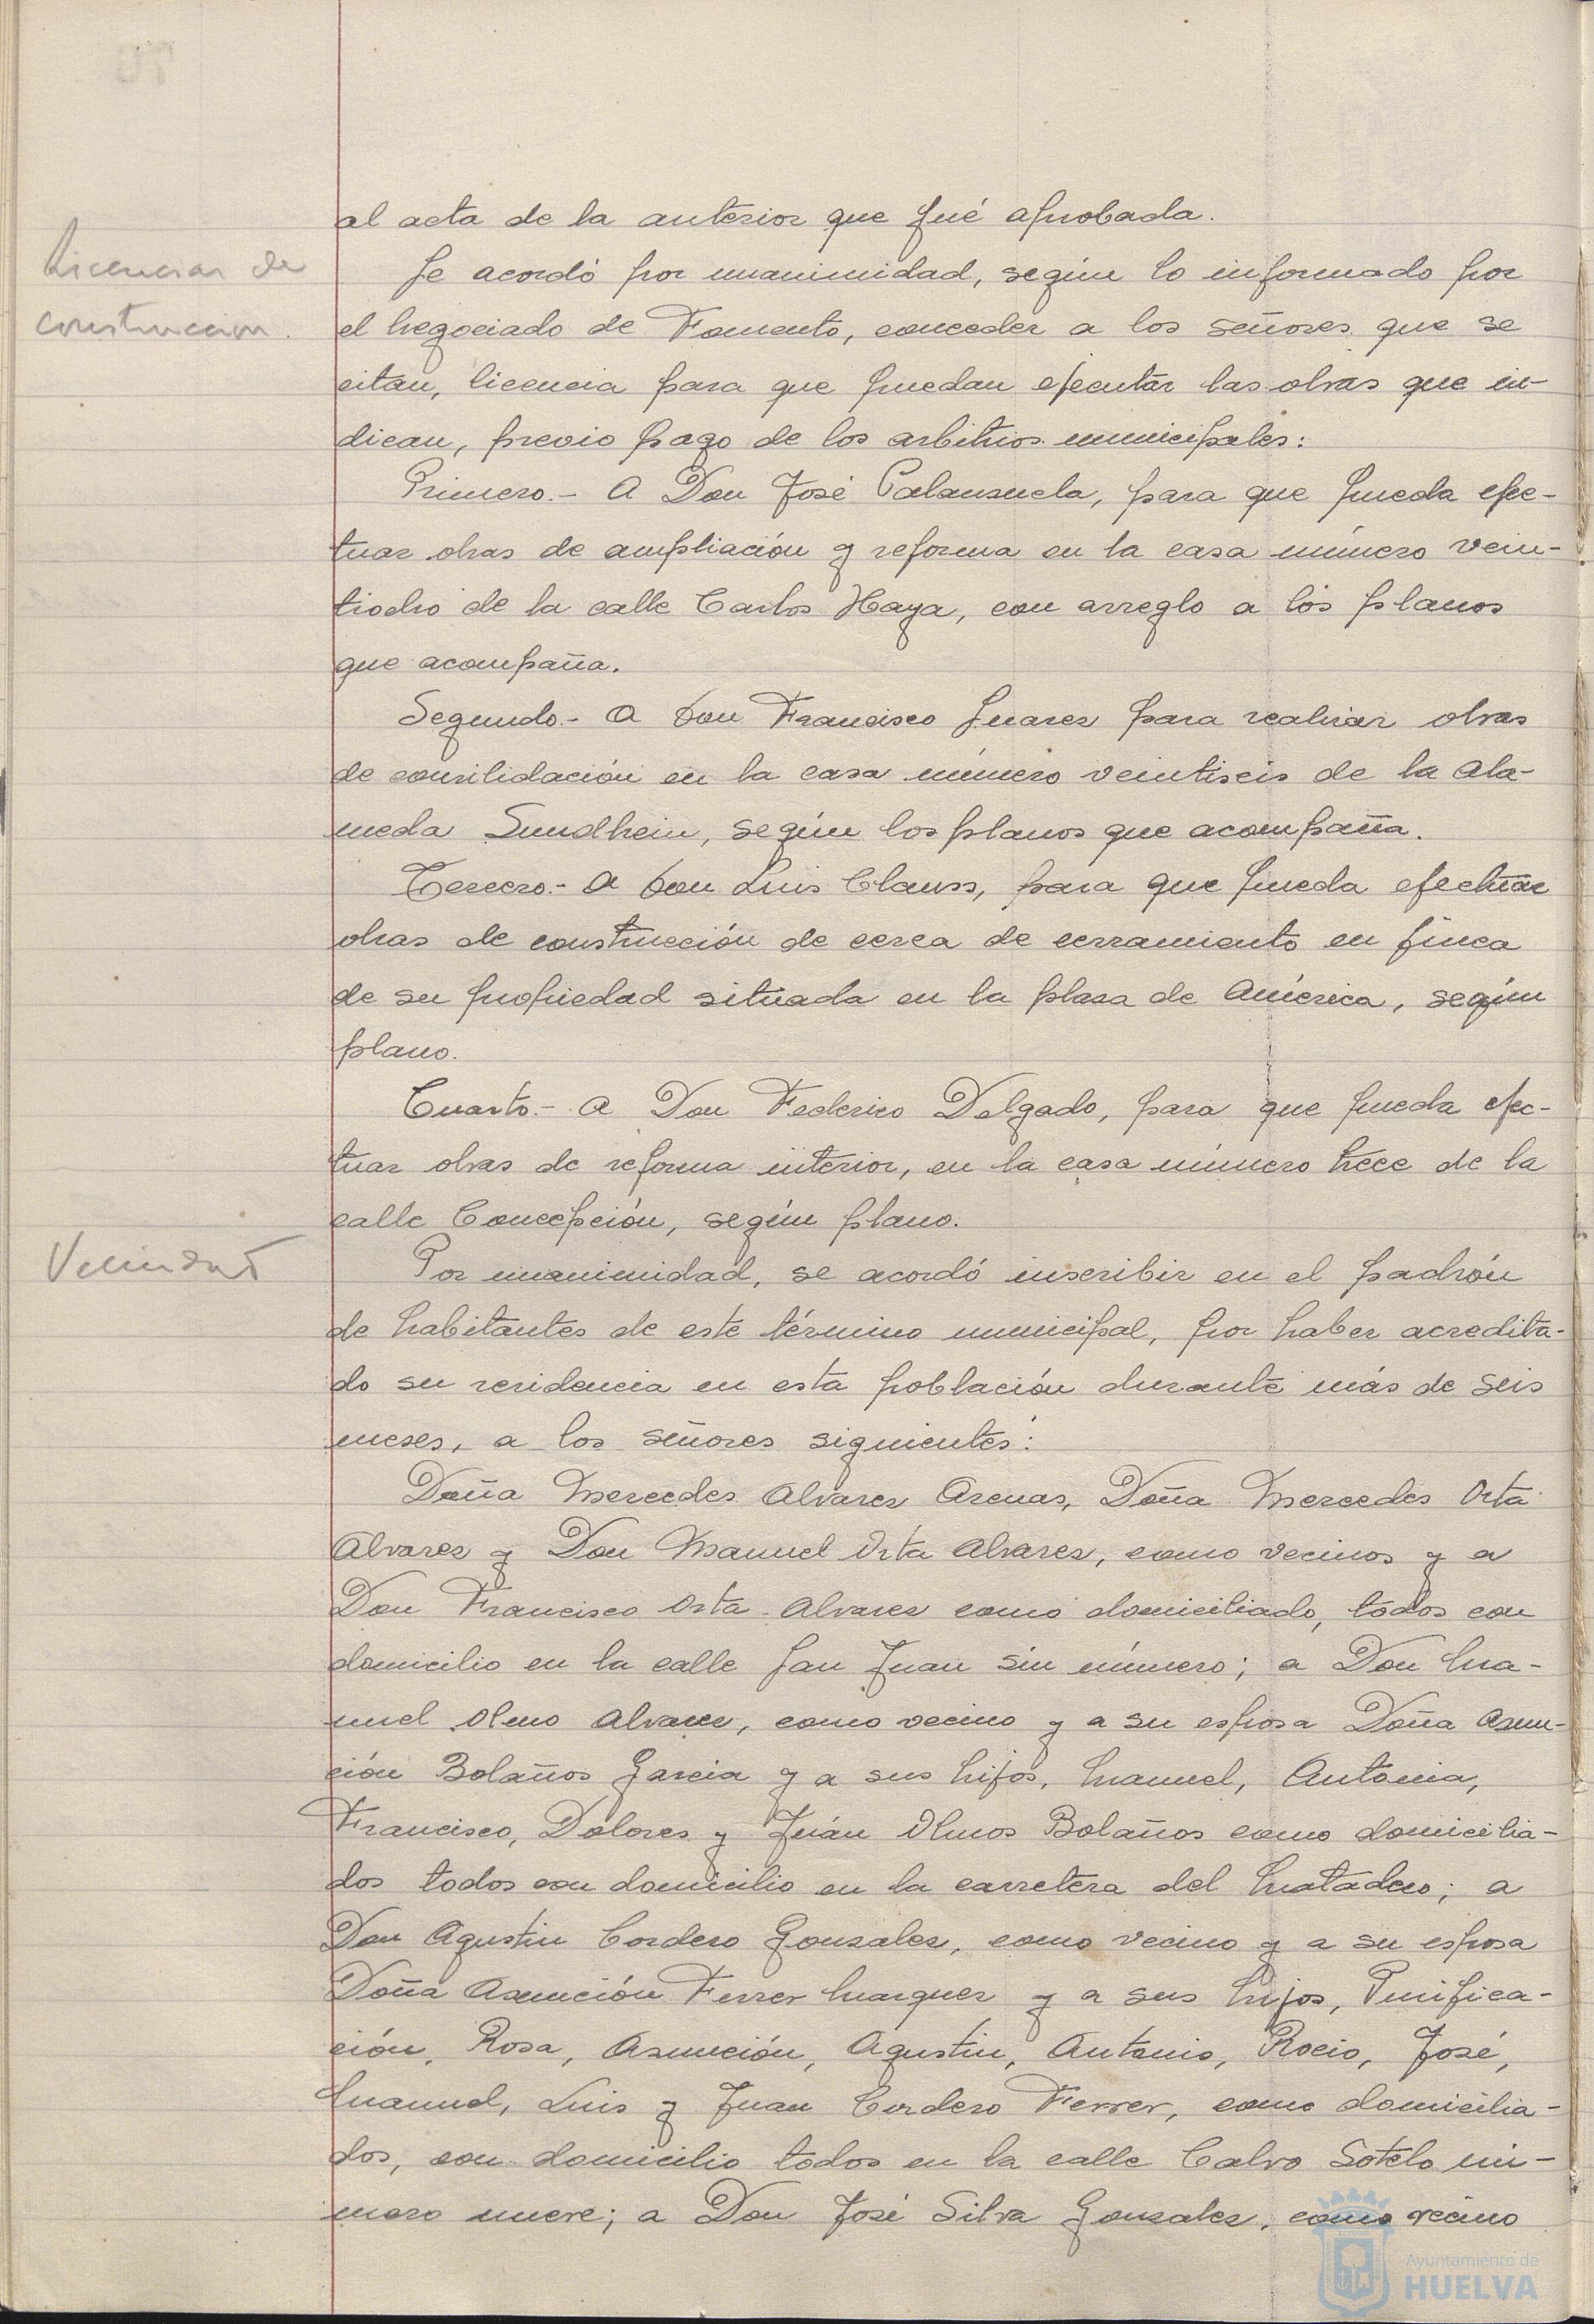 al acta de la anterior que fué aprobada.
Licencias de
construccion.
Se acordó por unanimidad, según lo informado por
el Negociado de Fomento, conceder a los señores que se
citan, licencia para que puedan ejecutar las obras que in-
dican, previo pago de los arbitrios municipales:
Primero.- A Don José Palanzuela, para que pueda efec-
tuar obras de ampliación y reforma en la casa número vein-
tiocho de la calle Carlos Haya, con arreglo a los planos
que acompaña.
Segundo.- A Don Francisco Suarez para realizar obras
de consilidación en la casa número veintiseis de la Ala-
meda Sundhein, según los planos que acompaña.
Tercero.- A Don Luis Clauss, para que pueda efectuar
obras de construcción de cerca de cerramiento en finca
de su propiedad situada en la plaza de América, según
plano.
Cuarto.- A Don Federico Delgado, para que pueda efec-
tuar obras de reforma interior, en la casa número trece de la
calle Concepción, según plano.
Vecindad
Por unanimidad, se acordó inscribir en el padrón
de habitantes de este término municipal, por haber acredita-
do su residencia en esta población durante más de seis
meses, a los señores siguientes:
Doña Mercedes Alvarez Arenas, Doña Mercedes Orta
Alvarez y Don Manuel Orta Alvarez, como vecinos y a
Don Francisco Orta Alvarez como domiciliado, todos con
domicilio en la calle San Juan sin número; a Don Ma-
nuel Olmo Alvarez, como vecino y a su esposa Doña Asun-
ción Bolaños Garcia y a sus hijos, Manuel, Antonia,
Francisco, Dolores y Juán Olmos Bolaños como domicilia-
dos todos con domicilio en la carretera del Matadero; a
Don Agustin Cordero Gonzalez, como vecino y a su esposa
Doña Asunción Ferrer Marquez y a sus hijos, Purifica-
ción, Rosa, Asunción, Agustin, Antonio, Rocio, José,
Manuel, Luis y Juan Cordero Ferrer, como domicilia-
dos, con domicilio todos en la calle Calvo Sotelo nú-
mero nueve; a Don José Silva Gonzalez, como vecino
Ayuntamiento de
HUELVA